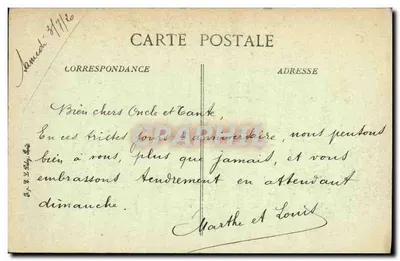 Samedi 3/7/20
CARTE POSTALE
CORRESPONDANCE
ADRESSE
Bien chers Oncle et Tante,
En ces tristes jours anniversaire, nous pensons
bien à vous, plus que jamais, et vous
embrassons tendrement en attendant
dimanche.
Marthe et Louis